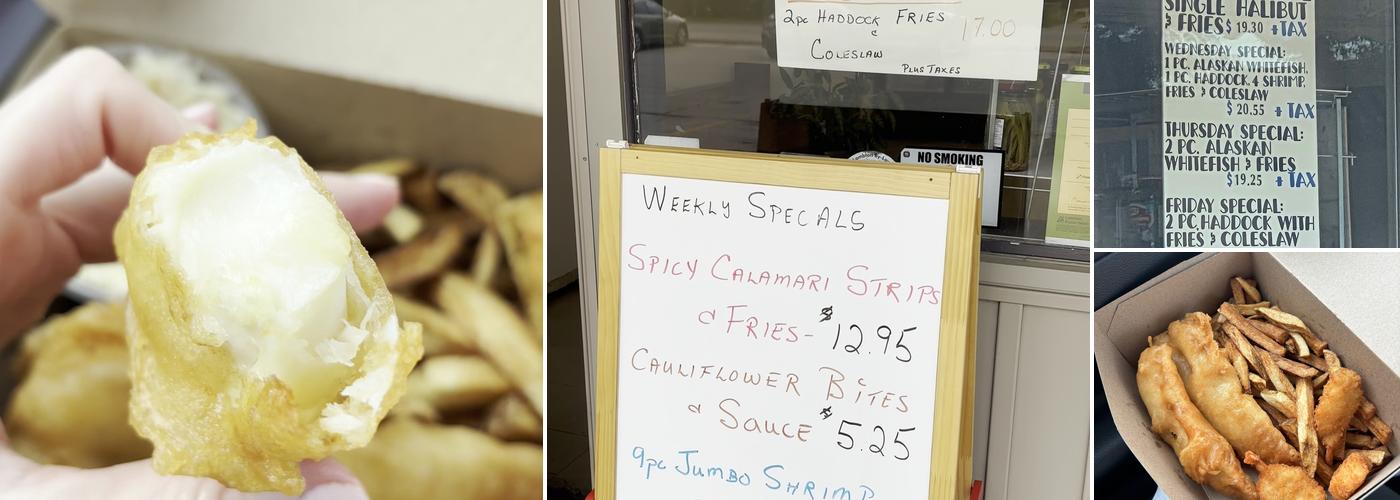 2pc HADDOCK FRIES 17.00
&
COLESLAW
PLUS TAXES
NO SMOKING
WEEKLY SPECALS
SPICY CALAMARI STRIPS
& FRIES- $12.95
CAULIFLOWER BITES
& SAUCE $5.25
9pc JUMBO SHRIMP
SINGLE HALIBUT
& FRIES $ 19.30 +TAX
WEDNESDAY SPECIAL:
1 PC. ALASKAN WHITEFISH,
1 PC. HADDOCK, 4 SHRIMP,
FRIES & COLESLAW
$ 20.55 + TAX
THURSDAY SPECIAL:
2 PC. ALASKAN
WHITEFISH & FRIES
$19.25 + TAX
FRIDAY SPECIAL:
2 PC. HADDOCK WITH
FRIES & COLESLAW